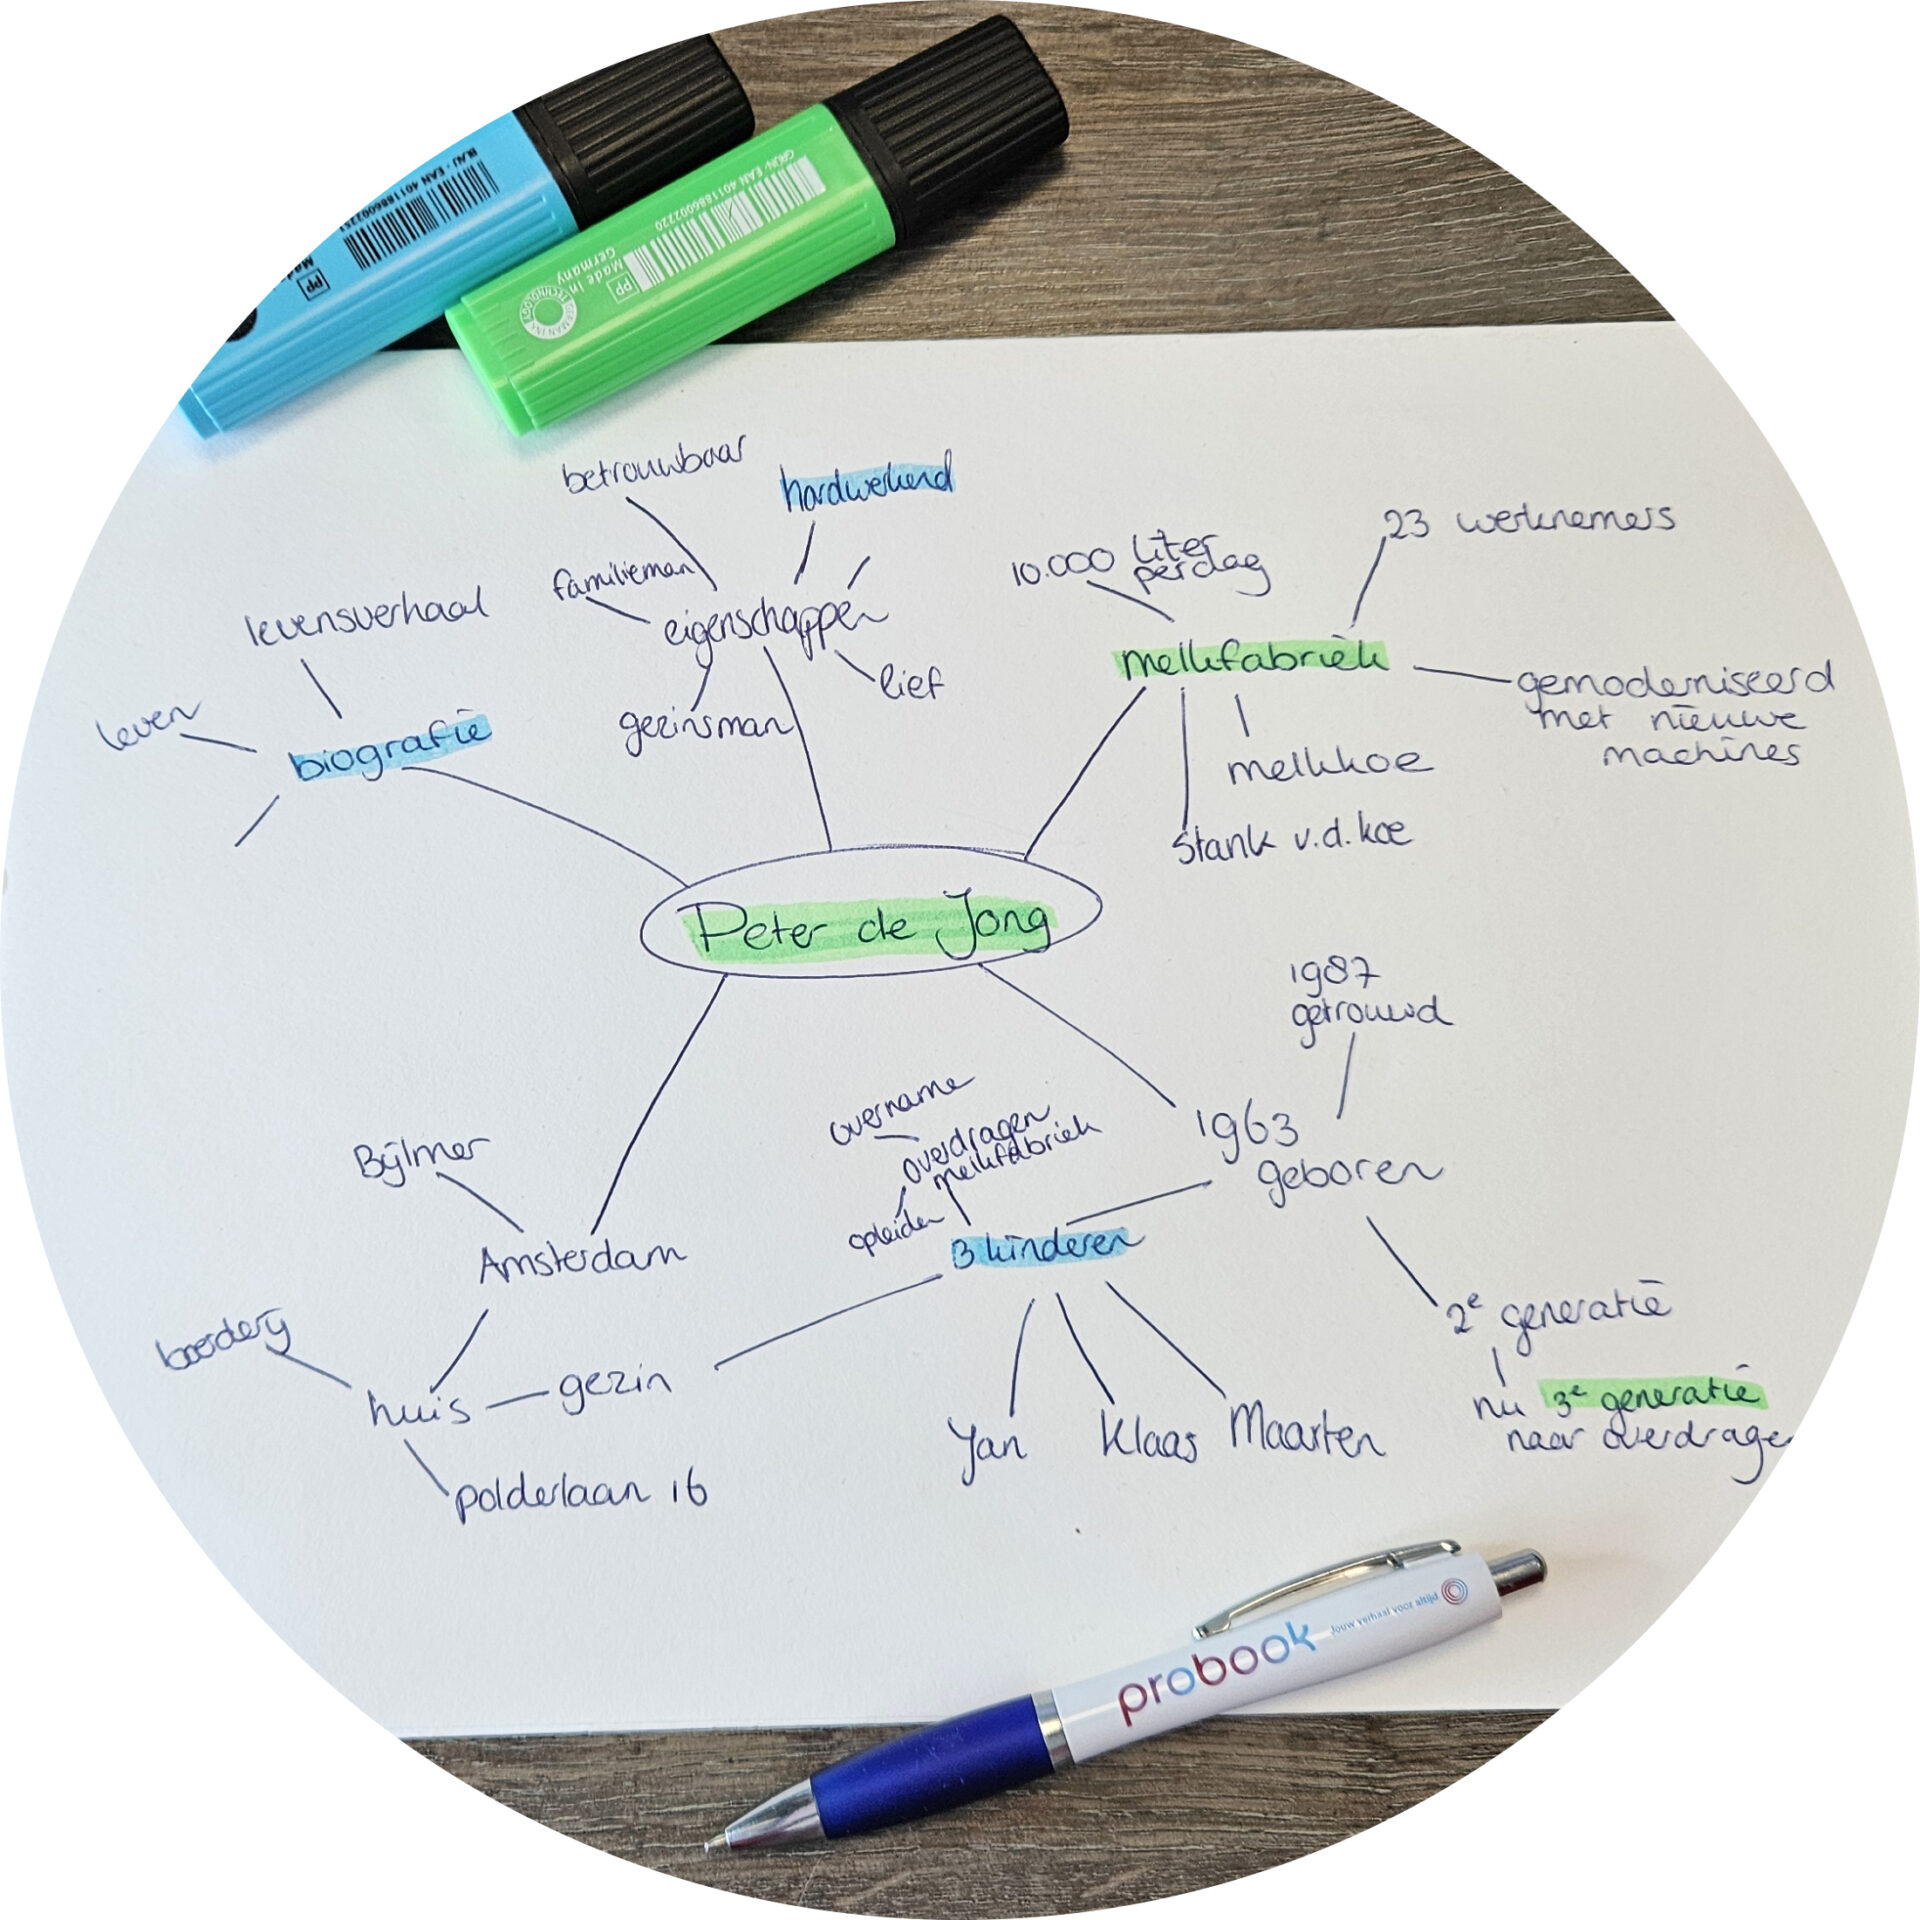 BLAU - EAN 4011886002251
PP
GRÜN - EAN 4011886002220
PP
Made in
Germany
GERMAN INK TECHNOLOGY
betrouwbaar
hardwerkend
familieman
eigenschappen
gezinsman
lief
levensverhaal
leven
biografie
10.000 liter
per dag
23 werknemers
melkfabriek
gemoderniseerd
met nieuwe
machines
melkkoe
stank v.d. koe
Peter de Jong
1987
getrouwd
1963
geboren
overname
overdragen
melkfabriek
opleiden
3 kinderen
Bijlmer
Amsterdam
boerderij
huis
gezin
polderlaan 16
Jan
Klaas
Maarten
2e generatie
nu 3e generatie
naar overdragen
probook
Jouw verhaal voor altijd